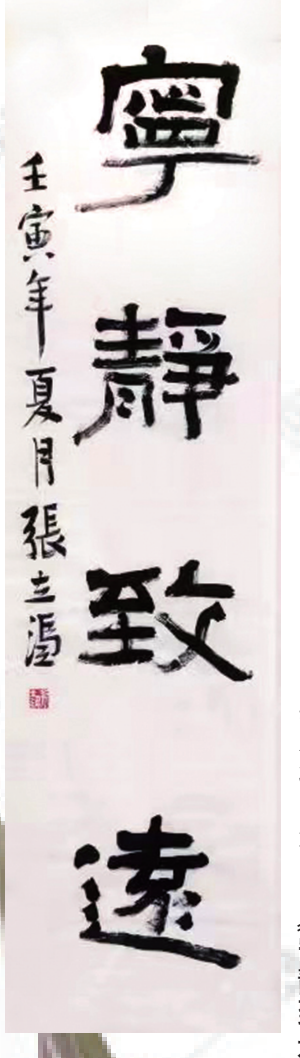 寧靜致遠
壬寅年夏月張立